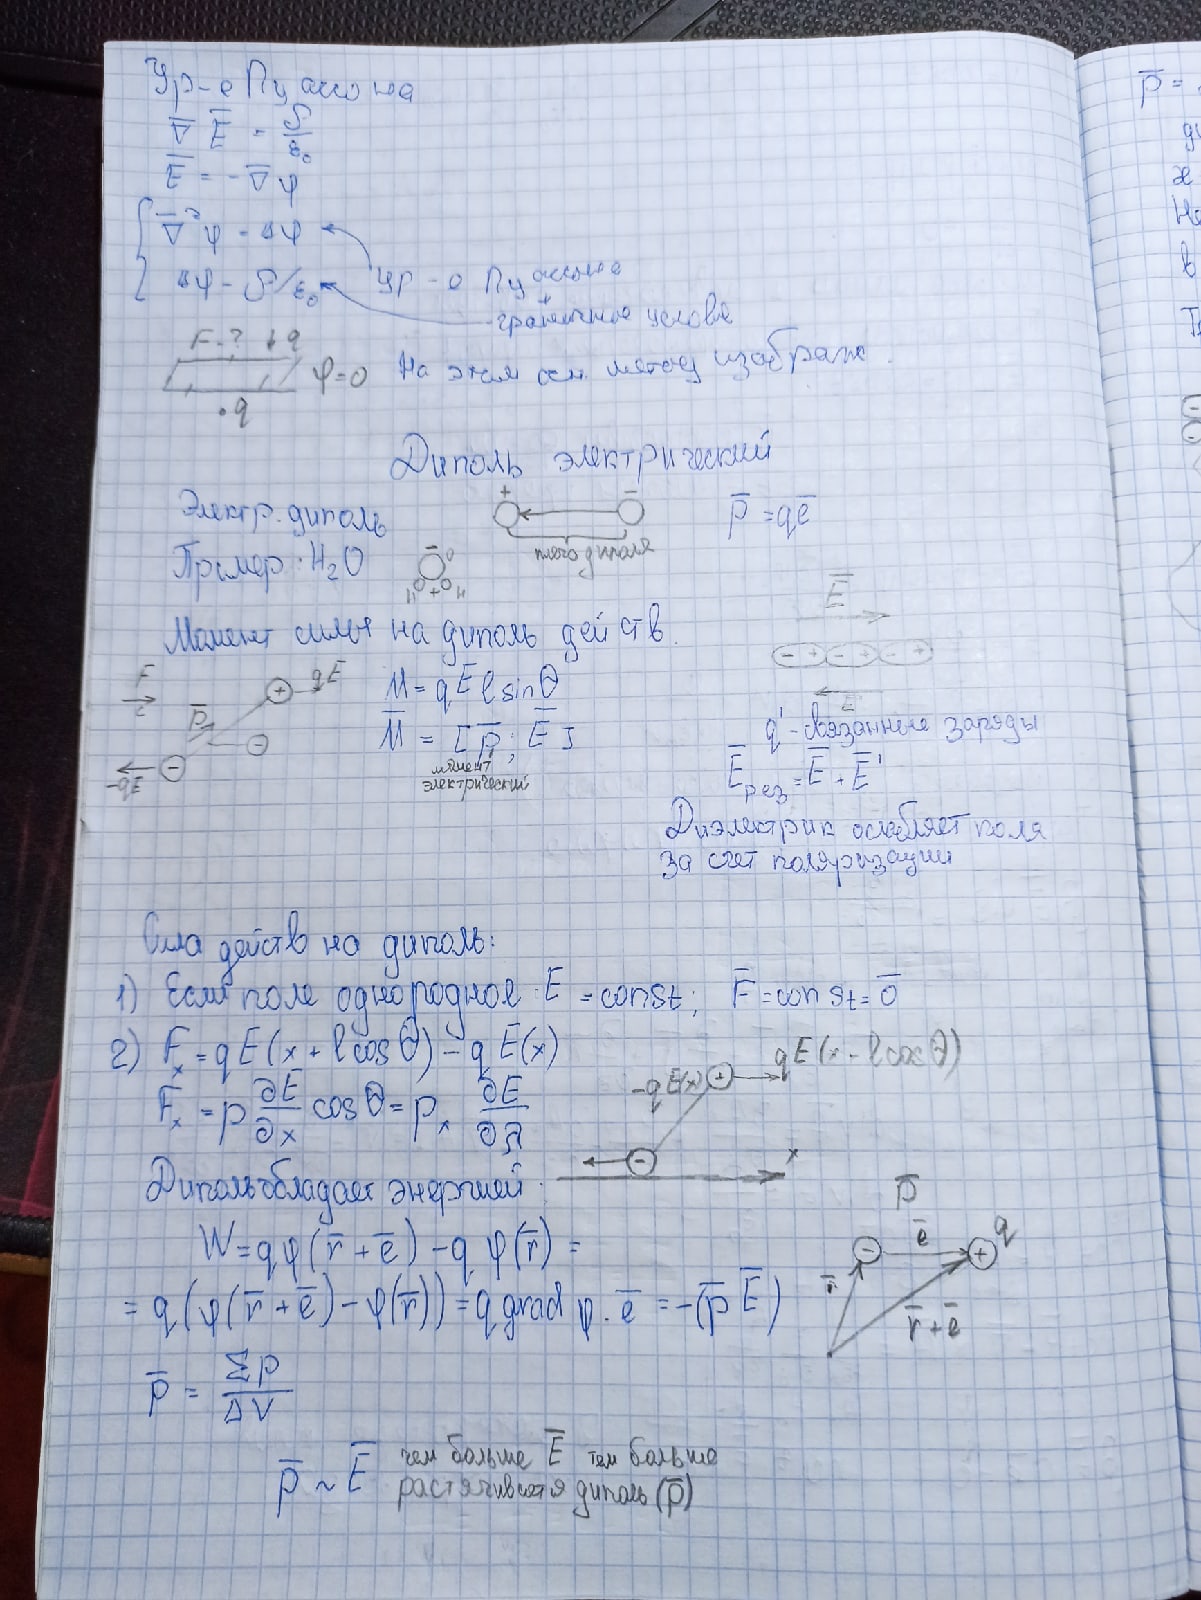 Ур-е Пуассона
∇̅ E̅ = ρ/ε₀
E̅ = -∇̅φ
∇̅²φ = Δφ
Δφ = ρ/ε₀ Ур-е Пуассона
+ граничное услове
F-? +q
φ=0 На этом осн. метод изображ.
•q
Диполь электрический
Электр. диполь + − p̅ = qe̅
плечо диполя
Пример: H₂O − O
H + H
E̅
Момент силы на диполь действ.
− + − + − +
F̅ p̅ + qE M = qE̅ l sinθ
M̅ = [p̅; E̅]
-qE − − момент
электрический
q' - связанные заряды
E̅рез = E̅ + E̅'
Диэлектрик ослабляет поля
за счет поляризации
Сила действ на диполь:
1) Если поле однородное E̅ = const; F̅ = const = 0̅
2) Fₓ = qE(x + l cosθ) - qE(x)
-qE(x) + qE(x - l cosθ)
Fₓ = p ∂E/∂x cosθ = pₓ ∂E/∂x
− x
Диполь обладает энергией
p̅
W = qφ(r̅ + e̅) - qφ(r̅) =
− e̅ + q
= q(φ(r̅ + e̅) - φ(r̅)) = q grad φ · e̅ = -(p̅ E̅)
r̅ r̅ + e̅
p̅ = Σp/ΔV
p̅ ~ E̅ чем больше E̅ тем больше
растягивается диполь (p̅)
p̅ =